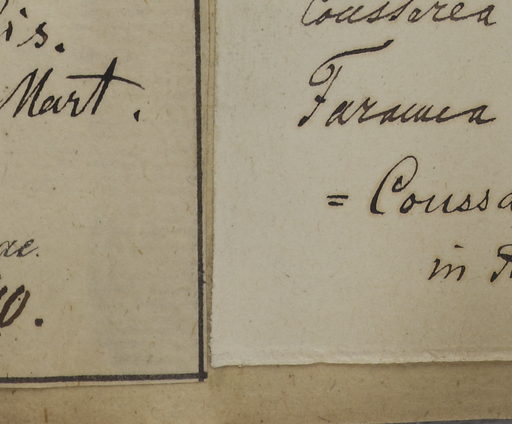 is.
Mart.
ae.
0.
Coussarea
Faramea
= Coussa
in